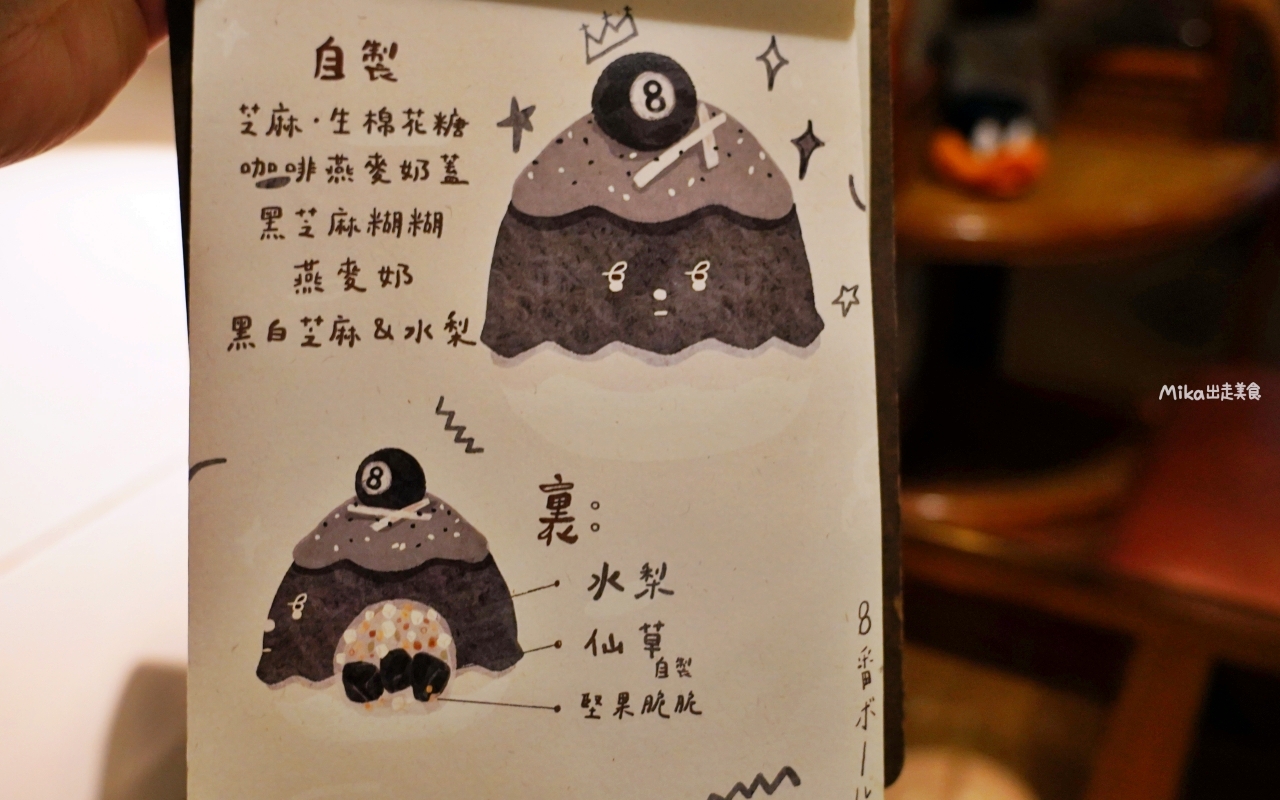 自製
芝麻·生棉花糖
咖啡燕麥奶蓋
黑芝麻糊糊
燕麥奶
黑白芝麻&水梨
8
8
裏：
水梨
仙草
自製
堅果脆脆
8番ボール
Mika出走美食